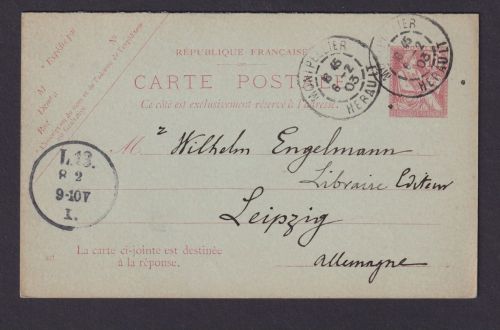 RÉPUBLIQUE FRANÇAISE
CARTE POSTALE
Ce côté est exclusivement réservé à l'adresse.
MONTPELLIER
18 15
6 -2
03
HERAULT
MONTPELLIER
18 15
6 -2
03
HERAULT
L.13.
8 2
9-10V
I.
M r Wilhelm Engelmann
Libraire Editeur
Leipzig
Allemagne
La carte ci-jointe est destinée
à la réponse.